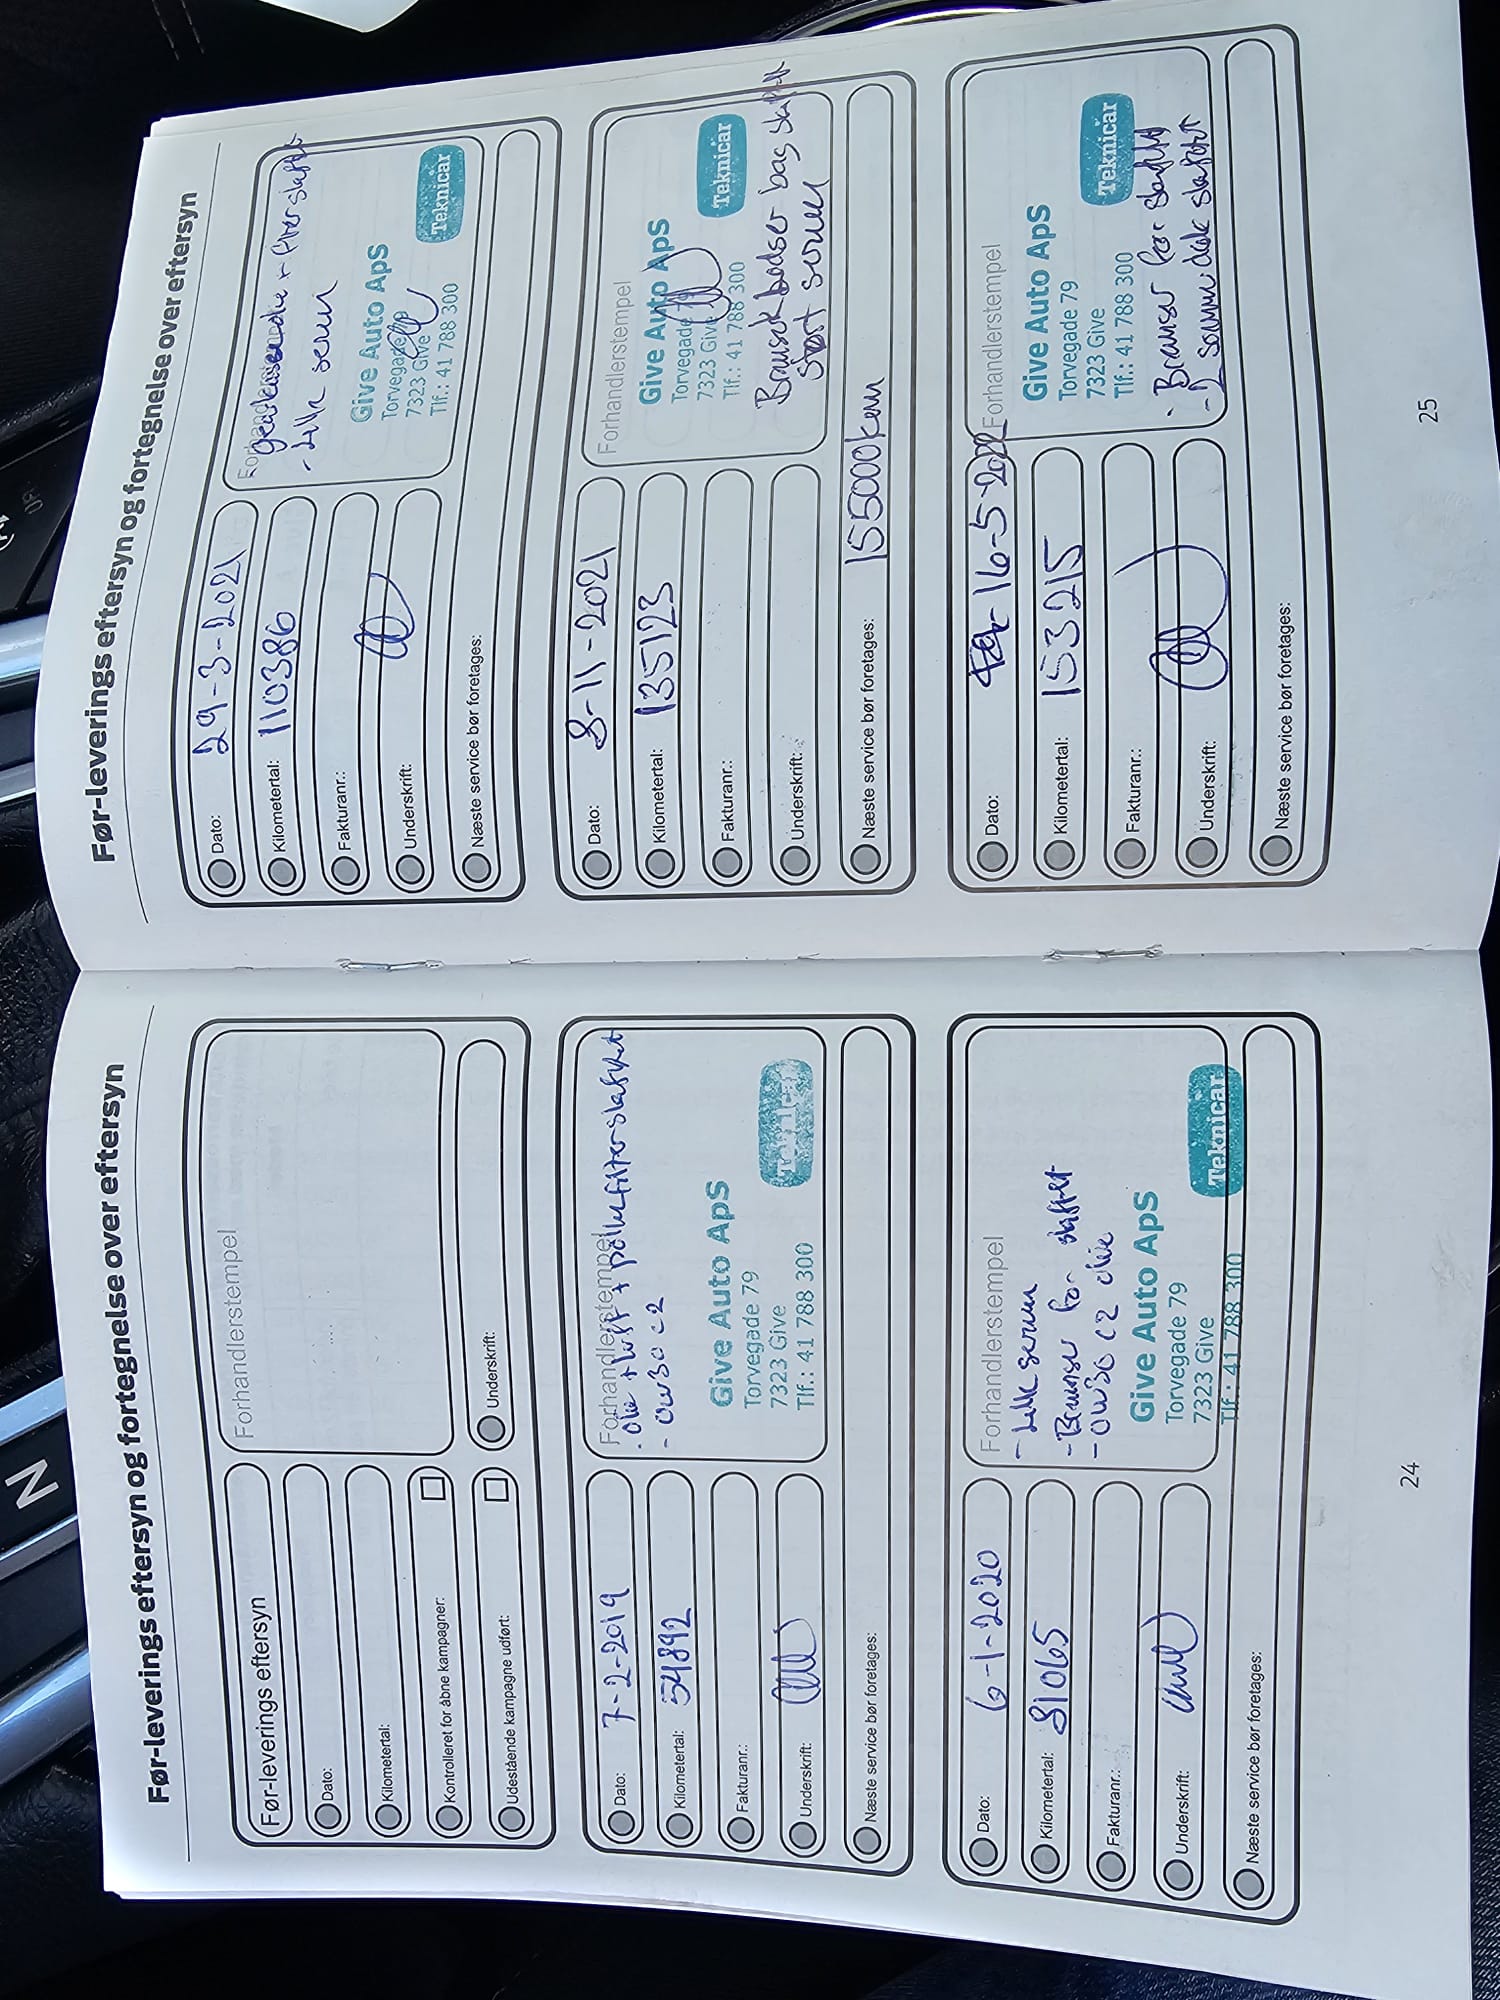 N
Før-leverings eftersyn og fortegnelse over eftersyn
Før-leverings eftersyn
Dato:
Kilometertal:
Kontrolleret for åbne kampagner:
Udestående kampagne udført:
Forhandlerstempel
Underskrift:
Dato: 7-2-2019
Kilometertal: 54892
Fakturanr.:
Underskrift:
Næste service bør foretages:
Forhandlerstempel
- Olie + luft + pollenfilter skiftet
- 0W30 C2
Give Auto ApS
Torvegade 79
7323 Give
Tlf.: 41 788 300
Teknicar
Dato: 6-1-2020
Kilometertal: 81065
Fakturanr.:
Underskrift:
Næste service bør foretages:
Forhandlerstempel
- Lille
- Bremser for skiftet
- 0W30 C2 olie
Give Auto ApS
Torvegade 79
7323 Give
Tlf.: 41 788 300
Teknicar
24
Før-leverings eftersyn og fortegnelse over eftersyn
Dato: 29-3-2021
Kilometertal: 110386
Fakturanr.:
Underskrift:
Næste service bør foretages:
- Lille
Give Auto ApS
Torvegade
7323 Give
Tlf.: 41 788 300
Teknicar
Dato: 8-11-2021
Kilometertal: 135123
Fakturanr.:
Underskrift:
Næste service bør foretages: 155000km
Forhandlerstempel
Give Auto ApS
Torvegade 79
7323 Give
Tlf.: 41 788 300
Teknicar
bag
Dato: 16-5-2022
Kilometertal: 153215
Fakturanr.:
Underskrift:
Næste service bør foretages:
Forhandlerstempel
Give Auto ApS
Torvegade 79
7323 Give
Tlf.: 41 788 300
Teknicar
- Bremser for skiftet
- 2 dæk skiftet
25